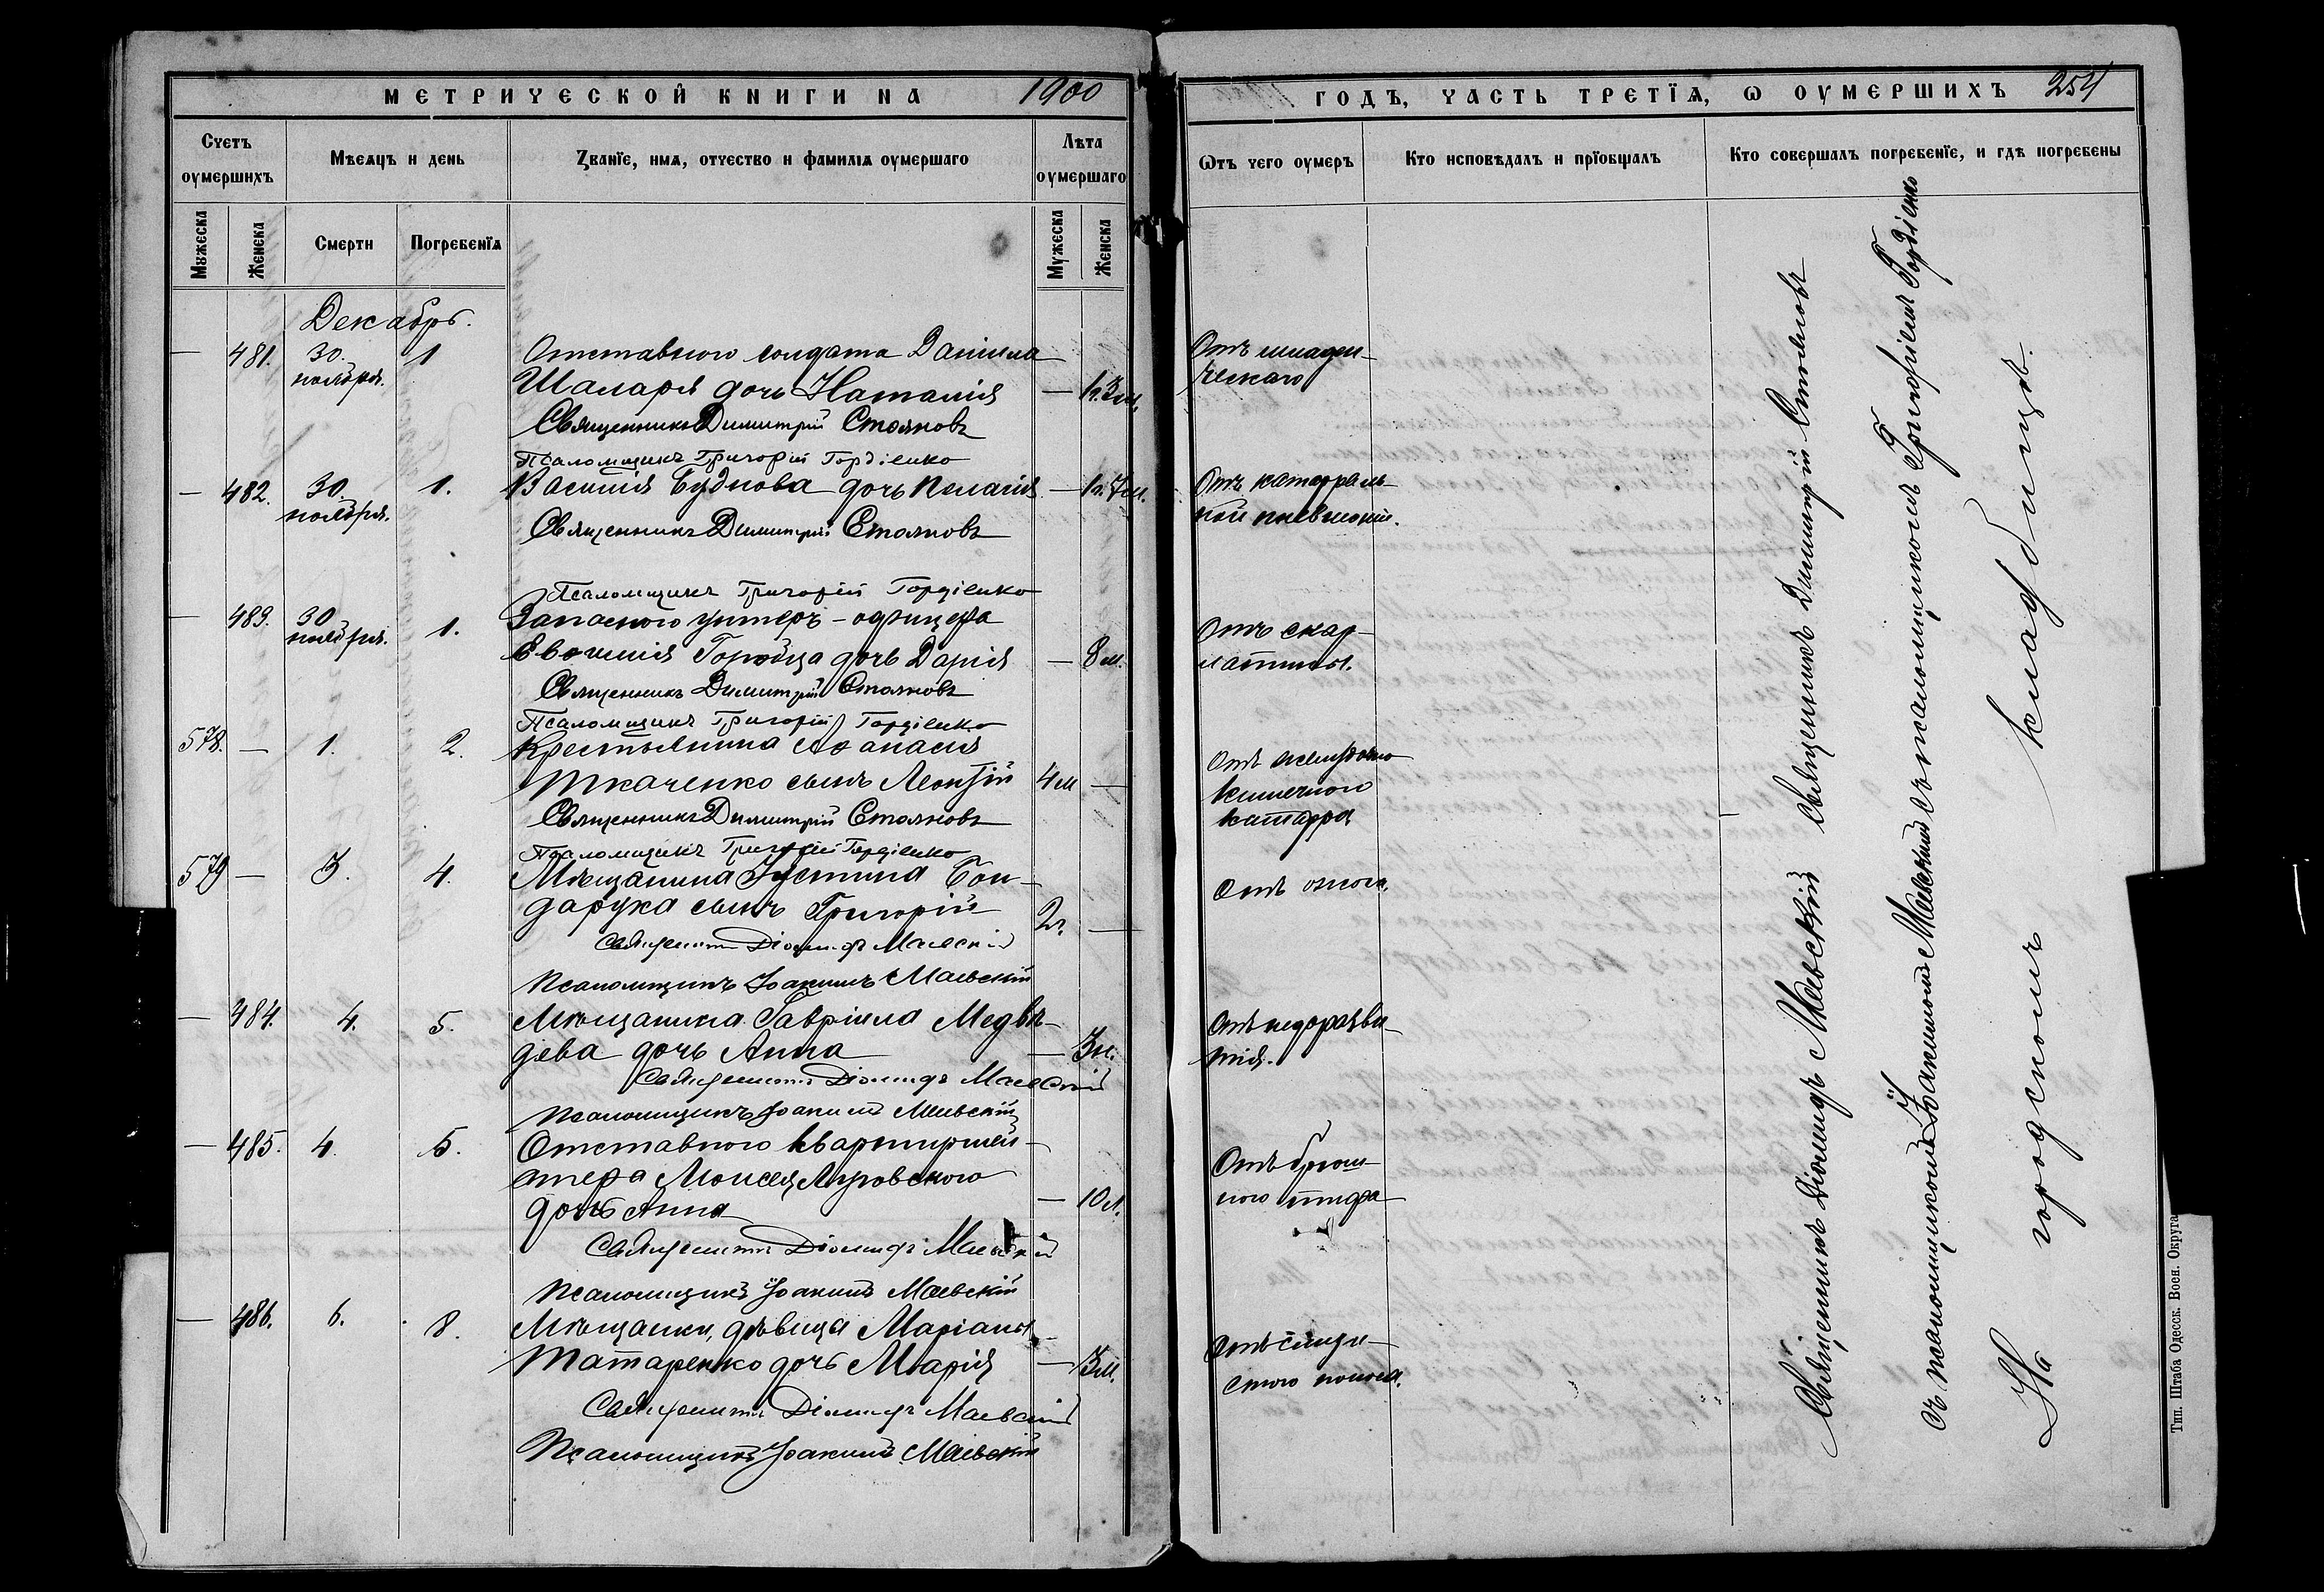 МЕТРИЧЕСКОЙ КНИГИ НА 1900
Счетъ оумершихъ
Мѣсяцъ и день
Званїе, имя, отчество и фамилїя оумершаго
Лѣта оумершаго
Мужеска
Женска
Смерти
Погребенїя
Мужеска
Женска
Декабрь.
— 481. 30. ноября. 1 Отставного солдата Даніила
Шаларя дочь Наталія — 1г. 3м.
Священникъ Димитрій Стояновъ
Псаломщикъ Григорій Гордіенко
— 482. 30. ноября. 1. Василія Буднова дочь Пелагія — 1г. 7м.
Священникъ Димитрій Стояновъ
Псаломщикъ Григорій Гордіенко
— 483. 30 ноября. 1. Запасного унтеръ-офицера
Евфимія Городца дочь Дарія — 8м.
Священникъ Димитрій Стояновъ
Псаломщикъ Григорій Гордіенко
578. — 1. 2. Крестьянина Афанасія
Ткаченко сынъ Леонтій 4м —
Священникъ Димитрій Стояновъ
Псаломщикъ Григорій Гордіенко
579 — 3. 4. Мѣщанина Іустина Бон-
дарука сынъ Григорій 2г. —
Священникъ Діомидъ Маевскій
Псаломщикъ Іоакимъ Маевскій
— 484. 4. 5. Мѣщанина Гавріила Медвѣ-
дева дочь Анна —
Священникъ Діомидъ Маевскій
Псаломщикъ Іоакимъ Маевскій
— 485. 4. 5. Отставного квартирмей-
стера Моисея
дочь Анна — 10л.
Священникъ Діомидъ Маевскій
Псаломщикъ Іоакимъ Маевскій
— 486. 6. 8. Мѣщанки, дѣвицы Маріаны
Татаренко дочь Марія — 3м.
Священникъ Діомидъ Маевскій
Псаломщикъ Іоакимъ Маевскій
ГОДЪ, ЧАСТЬ ТРЕТЇЯ, Ѡ ОУМЕРШИХЪ 254
Ѿтъ чего оумеръ
Кто исповѣдалъ и прїобщалъ
Кто совершалъ погребенїе, и гдѣ погребены
Отъ младен-
ческаго
Отъ катарраль-
ной пневмоніи.
Отъ скар-
латины.
Отъ желудочно
кишечного
катарра
Отъ ожога.
Отъ недоразви-
тія.
Отъ брюш-
ного тифа
Священникъ Діомидъ Маевскій Священникъ Димитрій Стояновъ
съ псаломщикомъ Іоакимомъ Маевскимъ съ псаломщикомъ Григоріемъ Гордіенко
На городскомъ кладбищѣ.
Тип. Штаба Одесск. Воен. Округа